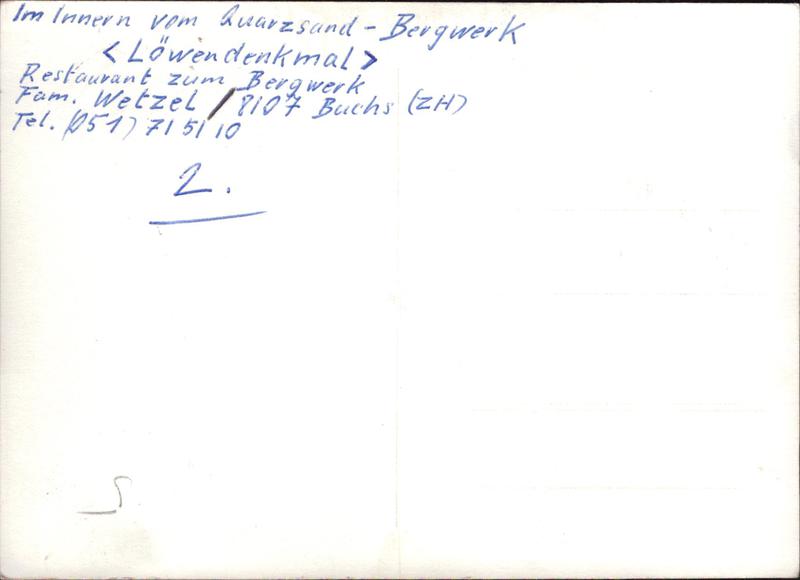 Im Innern vom Quarzsand - Bergwerk
<Löwendenkmal>
Restaurant zum Bergwerk
Fam. Wetzel / 8107 Buchs (ZH)
Tel. (051) 71 51 10
2.